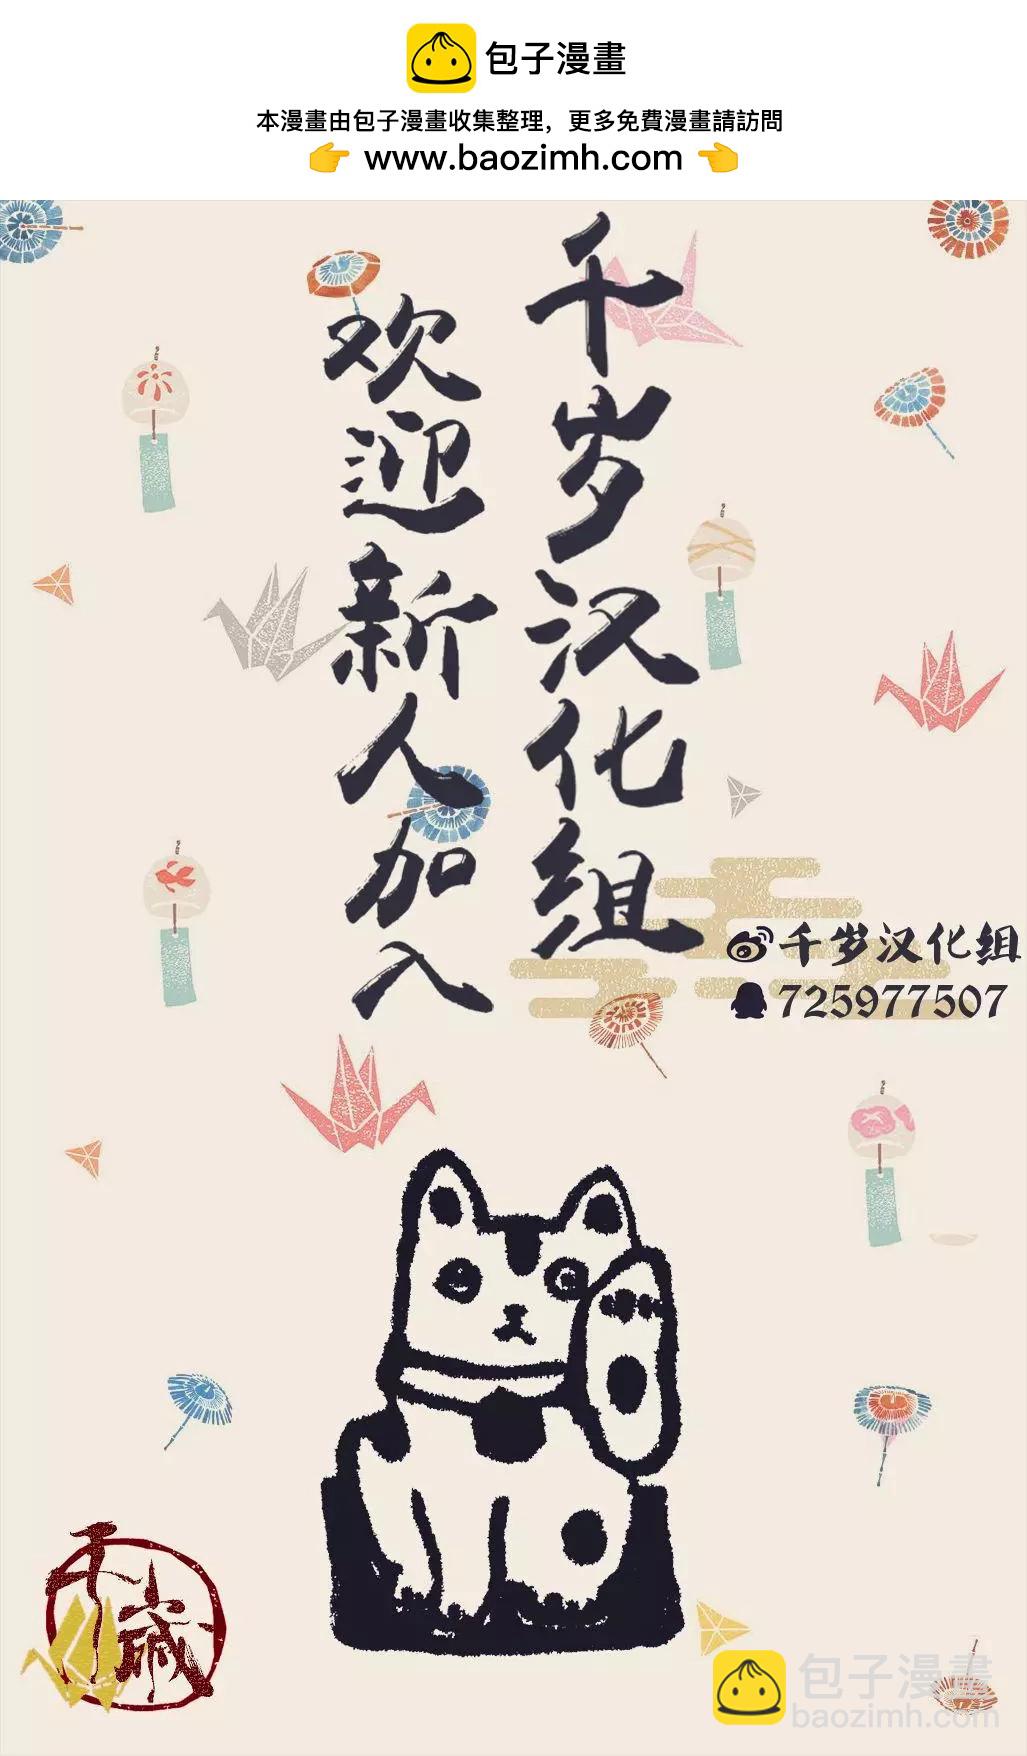 包子漫畫
本漫畫由包子漫畫收集整理，更多免費漫畫請訪問
👉 www.baozimh.com 👈
千岁汉化组
欢迎新人加入
千岁汉化组
725977507
千歲
包子漫畫
baozimh.com